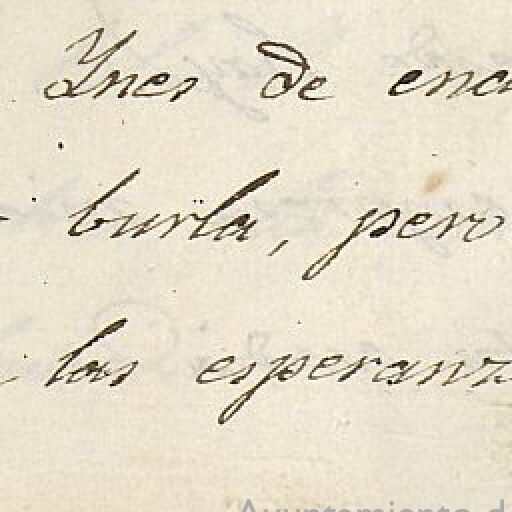 Ynes de enc
burla, pero
las esperanz
Ayuntamiento d